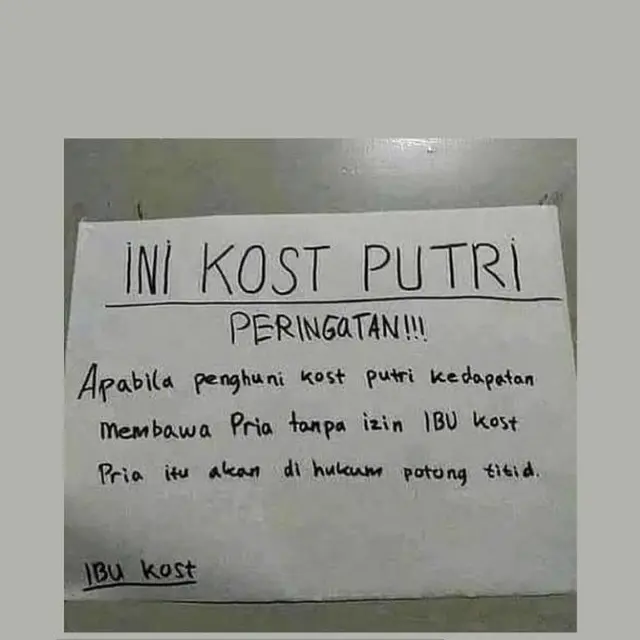 INI KOST PUTRI
PERINGATAN!!!
Apabila penghuni kost putri kedapatan
membawa Pria tanpa izin IBU kost
Pria itu akan di hukum potong titid.
IBU kost